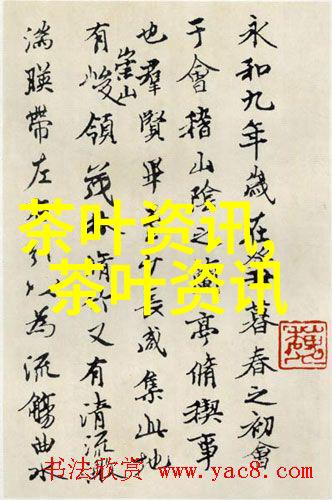 永和九年歲在暮春之初會
于會稽山陰之蘭亭脩禊事
也羣賢畢少長咸集此地
有崇山峻領茂脩竹又有清流激
湍暎帶左引以為流觴曲水
茶叶资讯,
茶叶资讯
书法欣赏 www.yac8.com